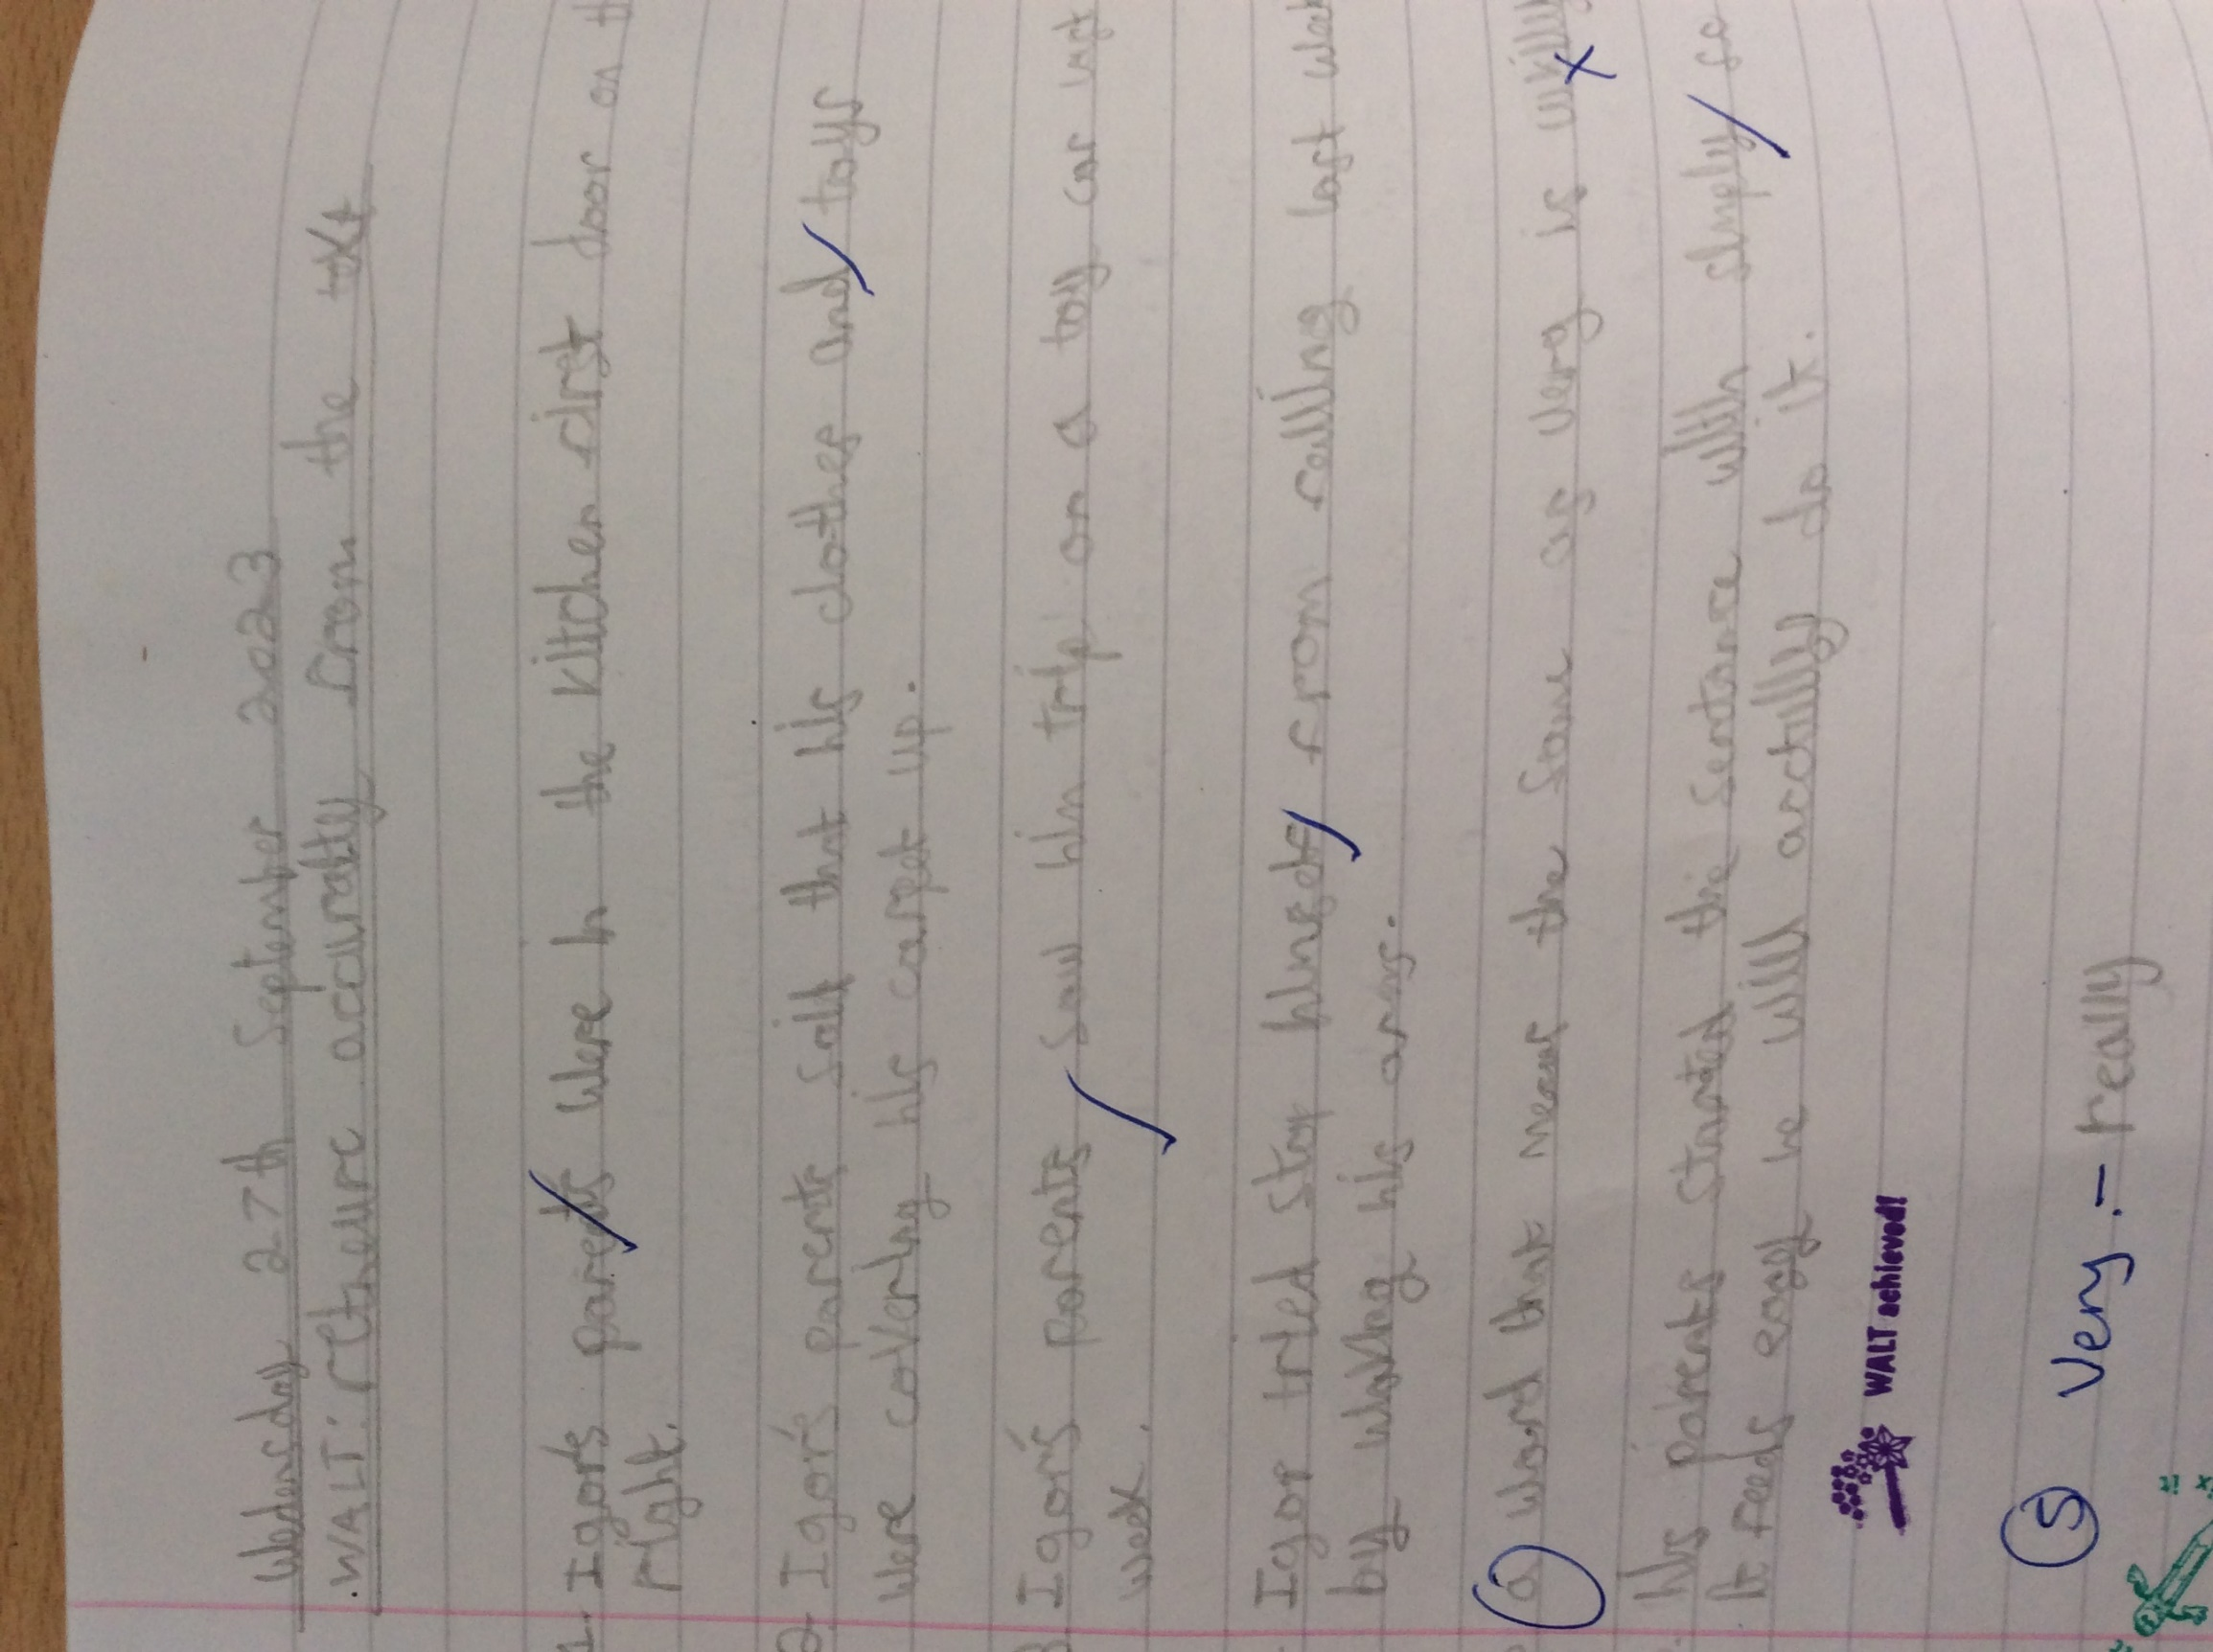 Wedensday 27th September 2023
WALT: retheive accuratley from the text
1. Igor's parents were in the kitchen first door on th
right.
2. Igor's parents said that his clothes and toys
were covering his carpet up.
3. Igor's parents saw him trip on a toy car last
week.
Igor tried stop himself from falling last wee
by waving his arms.
a word that mean the same as very is
his parents started the sentance with simply so
it feels easy he will actilly do it.
WALT achieved!
5 Very - really